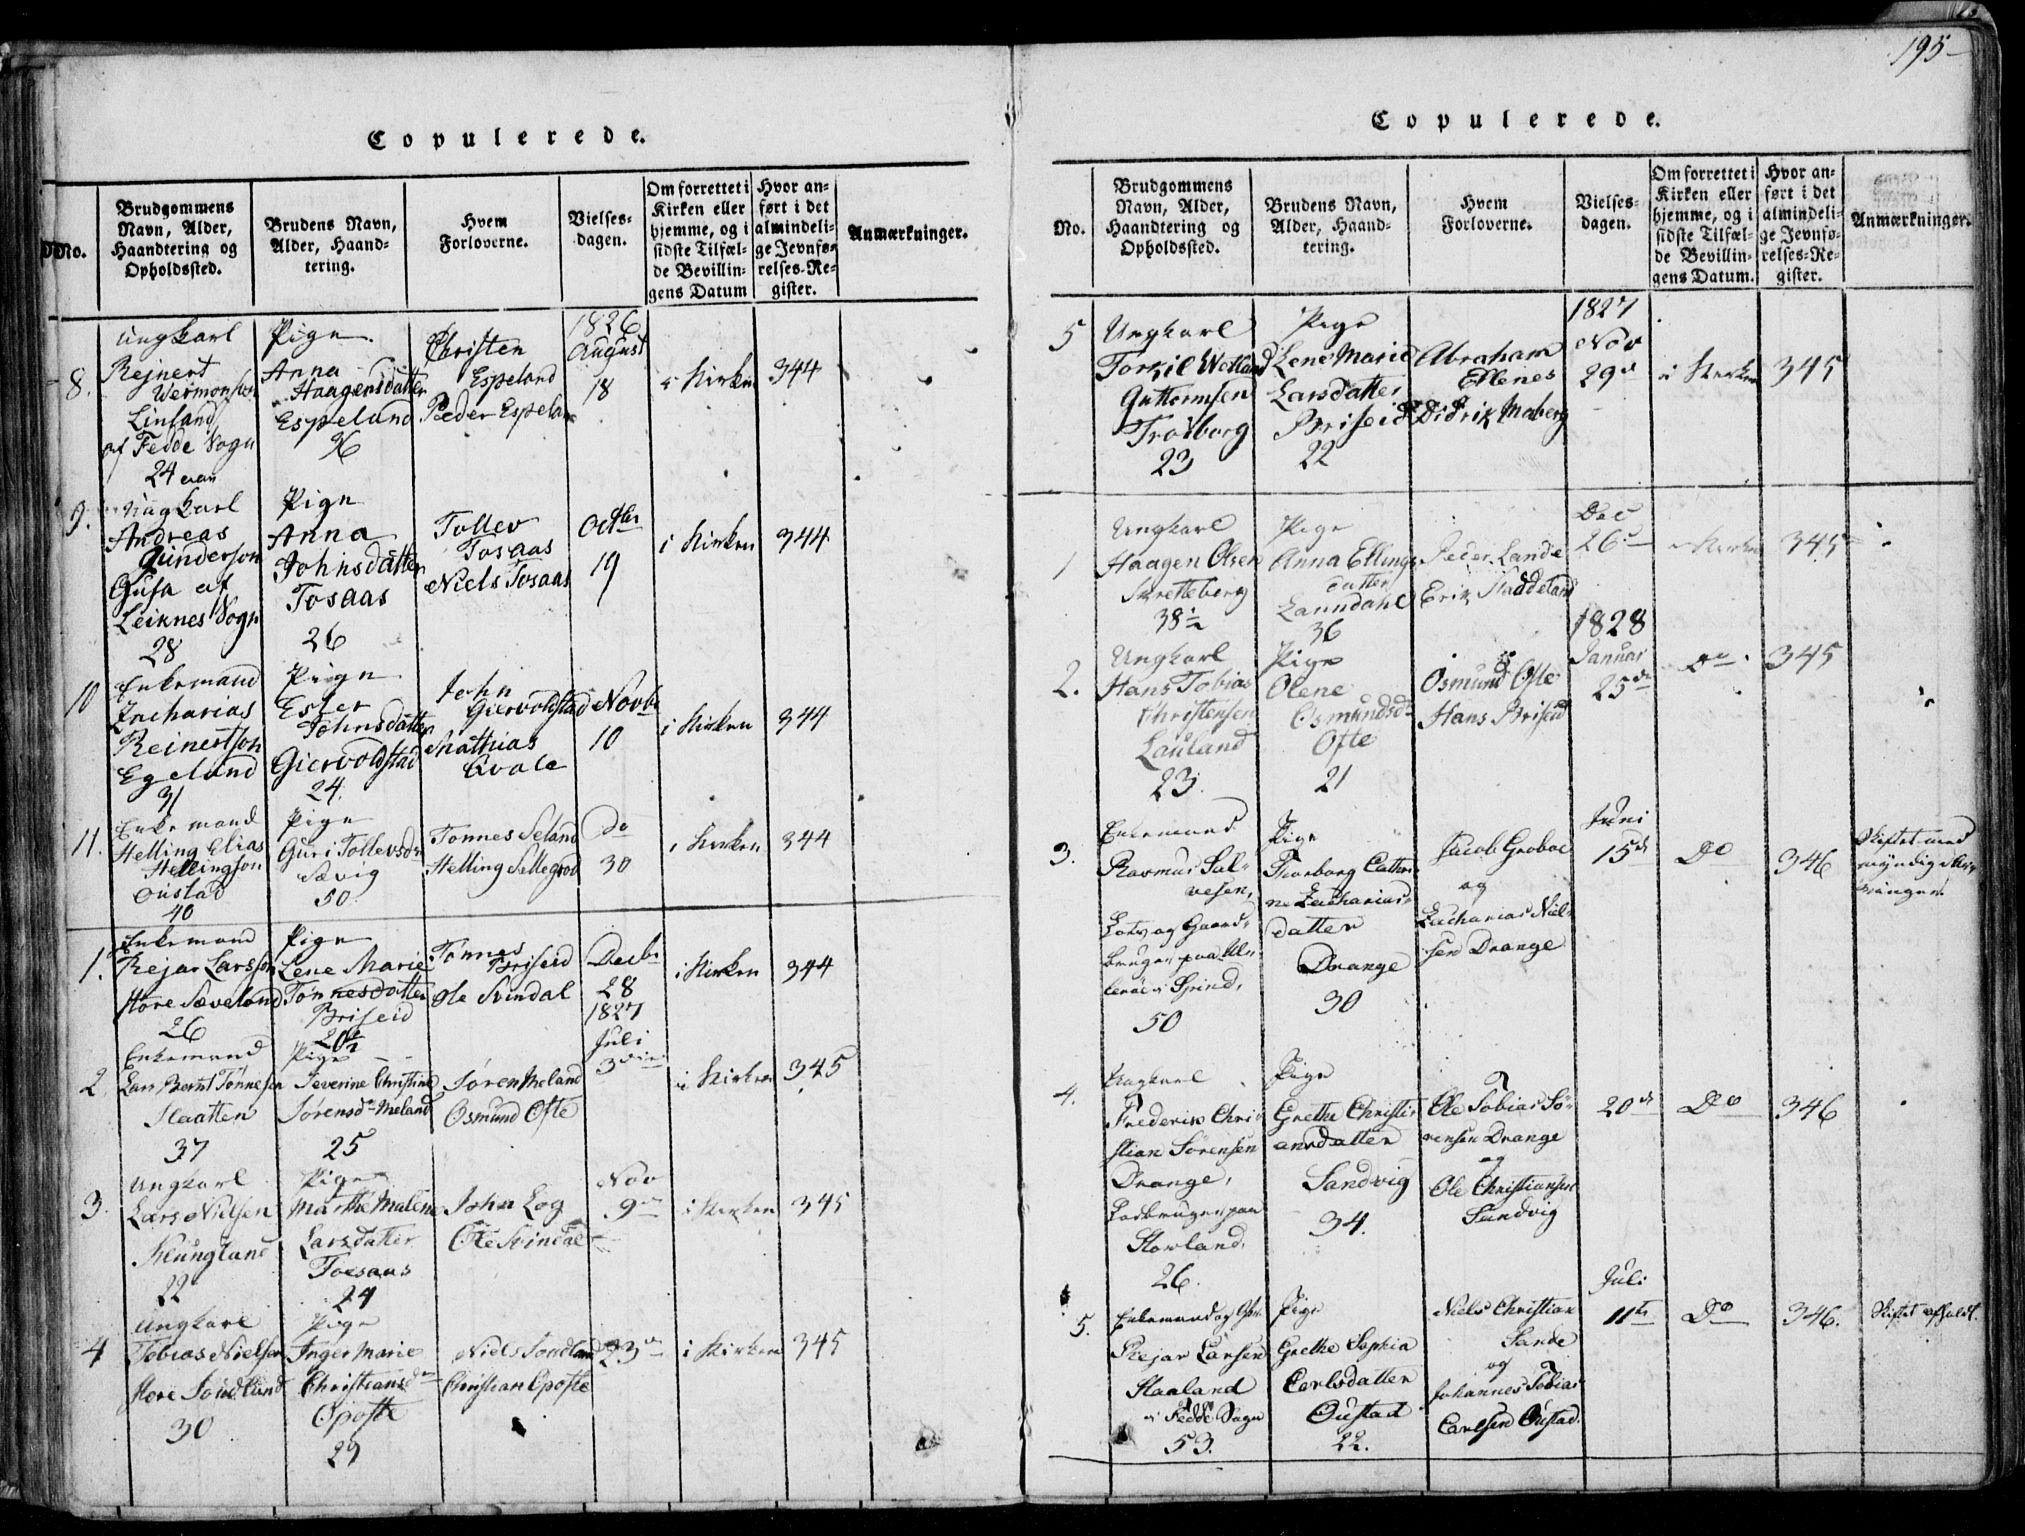 195
Copulerede.
No.
Brudgommens
Navn, Alder,
Haandtering og
Opholdssted.
Brudens Navn,
Alder, Haand-
tering.
Hvem
Forloverne.
Vielses-
dagen.
Om forrettet i
Kirken eller
hjemme, og i
sidste Tilfæl-
de Bevillin-
gens Datum
Hvor an-
ført i det
almindeli-
ge Jevnfø-
relses-Re-
gister.
Anmærkninger.
8.
Ungkarl
Rejnert
Wermonson
Linland
af Fedde Sogn
24 aar
Pige
Anna
Haagensdatter
Espeland
26
Christen
Espeland
Peder Espeland
1826
August
18
i Kirken
344
9.
Ungkarl
Andreas
Gunderson
Gusa af
Leiknes Sogn
28
Pige
Anna
Johnsdatter
Tosaas
26
Tollev
Tosaas
Niels Tosaas
Octbr
19
i Kirken
344
10
Enkemand
Zacharias
Reinertson
Egeland
31
Pige
Ester
Johnsdatter
Giervoldstad
24.
John
Giervoldstad
Mathias
Qvale
Novbr
10
i Kirken
344
11.
Enkemand
Helling Elias
Hellingson
Oustad
40
Pige
Guri Tollevsdr
Sævig
50
Tonnes Seland
Helling Sellegrod
Do
30
i Kirken
344
1.
Enkemand
Rejar Larsson
Store Sæveland
26
Pige
Lene Marie
Tønnesdatter
Briseid
20½
Tønnes
Briseid
Ole Svindal
Decbr
28
i Kirken
344
2
Enkemand
Lars Bernt Tønnesen
Slaatten
37
Pige
Severine Christine
Sørensdr Meland
25
Søren Meland
Osmund Ofte
1827
Juli
3die
i Kirken
345
3.
Ungkarl
Lars Nielsen
Klungland
22
Pige
Marthe Malene
Larsdatter
Tosaas
24
John Log
Ole Svindal
Nov
9de
i Kirken
345
4
Ungkarl
Tobias Nielsen
Store Sundland
30
Pige
Inger Marie
Christiansdr
Opofte
29
Niels Sundland
Christian Opofte
23de
i Kirken
345
Copulerede.
No.
Brudgommens
Navn, Alder,
Haandtering og
Opholdssted.
Brudens Navn,
Alder, Haand-
tering.
Hvem
Forloverne.
Vielses-
dagen.
Om forrettet i
Kirken eller
hjemme, og i
sidste Tilfæl-
de Bevillin-
gens Datum.
Hvor an-
ført i det
almindeli-
ge Jevnfø-
relses-Re-
gister.
Anmærkninger.
5
Ungkarl
Torkil Wetland
Guttormsen
Trodborg
23
Pige
Lene Marie
Larsdatter
Briseid
22
Abraham
Ellenes
Didrik Moberg
1827
Nov
29de
i Kirken
345
1
Ungkarl
Haagen Olsen
Skretteberg
38½
Pige
Anna Ellings
datter
Laundahl
36
Peder Lande
Erik Haddeland
Dec
26de
i Kirken
345
2.
Ungkarl
Hans Tobias
Christensen
Lauland
23
Pige
Olene
Osmundsdr
Ofte
21
Osmund Ofte
Hans Briseid
1828
Januar
25de
Do
345
3.
Enkemand
Rasmus Sal-
vesen,
Lods og Gaard-
bruger paa
i Spind,
50
Pige
Thorborg Cathri
ne Zacharias-
datter
Drange
30
Jacob Groboe
og
Zacharias Niel-
sen Drange
Juni
15de
Do
346
Skiftet med
myndige
4.
Ungkarl
Frederik Chri-
stian Sørensen
Drange,
Jordbruger paa
Stowland.
26.
Pige
Grethe Christi-
ansdatter
Sandvig
34.
Ole Tobias Sø-
rensen Drange
og
Ole Christiansen
Sandvig
20de
Do
346
5.
Enkemand og
Rejar Larsen
Staaland
i Fedde Sogn
53.
Pige
Grethe Sophia
Carlsdatter
Oustad
22.
Niels Christian
Sande
og
Johannes Tobias
Carlsen Oustad.
Juli
11te
Do
346.
Skiftet afholdt.